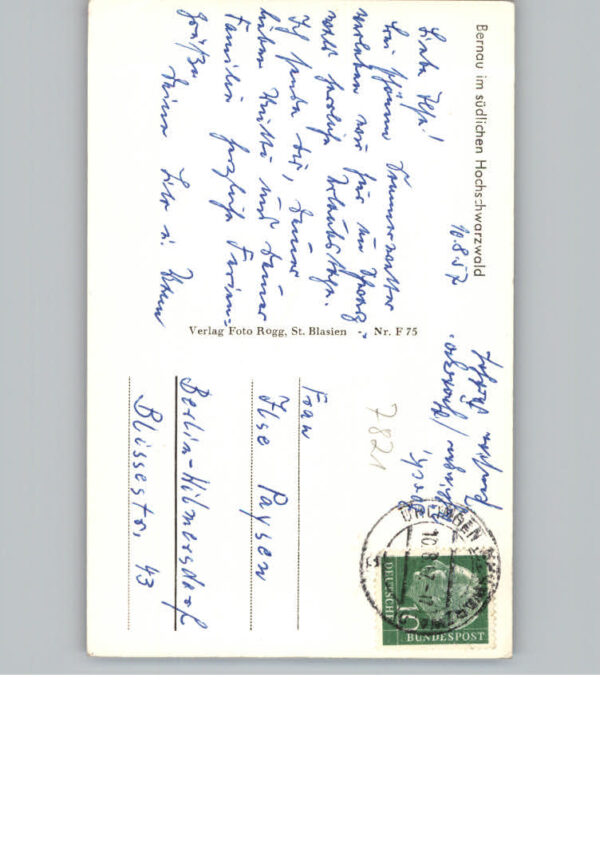 Bernau im südlichen Hochschwarzwald
10.8.57
Liebe Ilse!
bei schönem Sommerwetter
verleben wir hier im Schwarz-
wald herrliche Urlaubstage.
Ich sende dir, deiner
lieben Mutti und deiner
Familie herzliche Ferien-
grüße
Deine
Verlag Foto Rogg, St. Blasien · Nr. F 75
7821
Frau
Ilse Paysen
Berlin-Wilmersdorf
Blissestr. 43
10.8.57
DEUTSCHE
BUNDESPOST
10